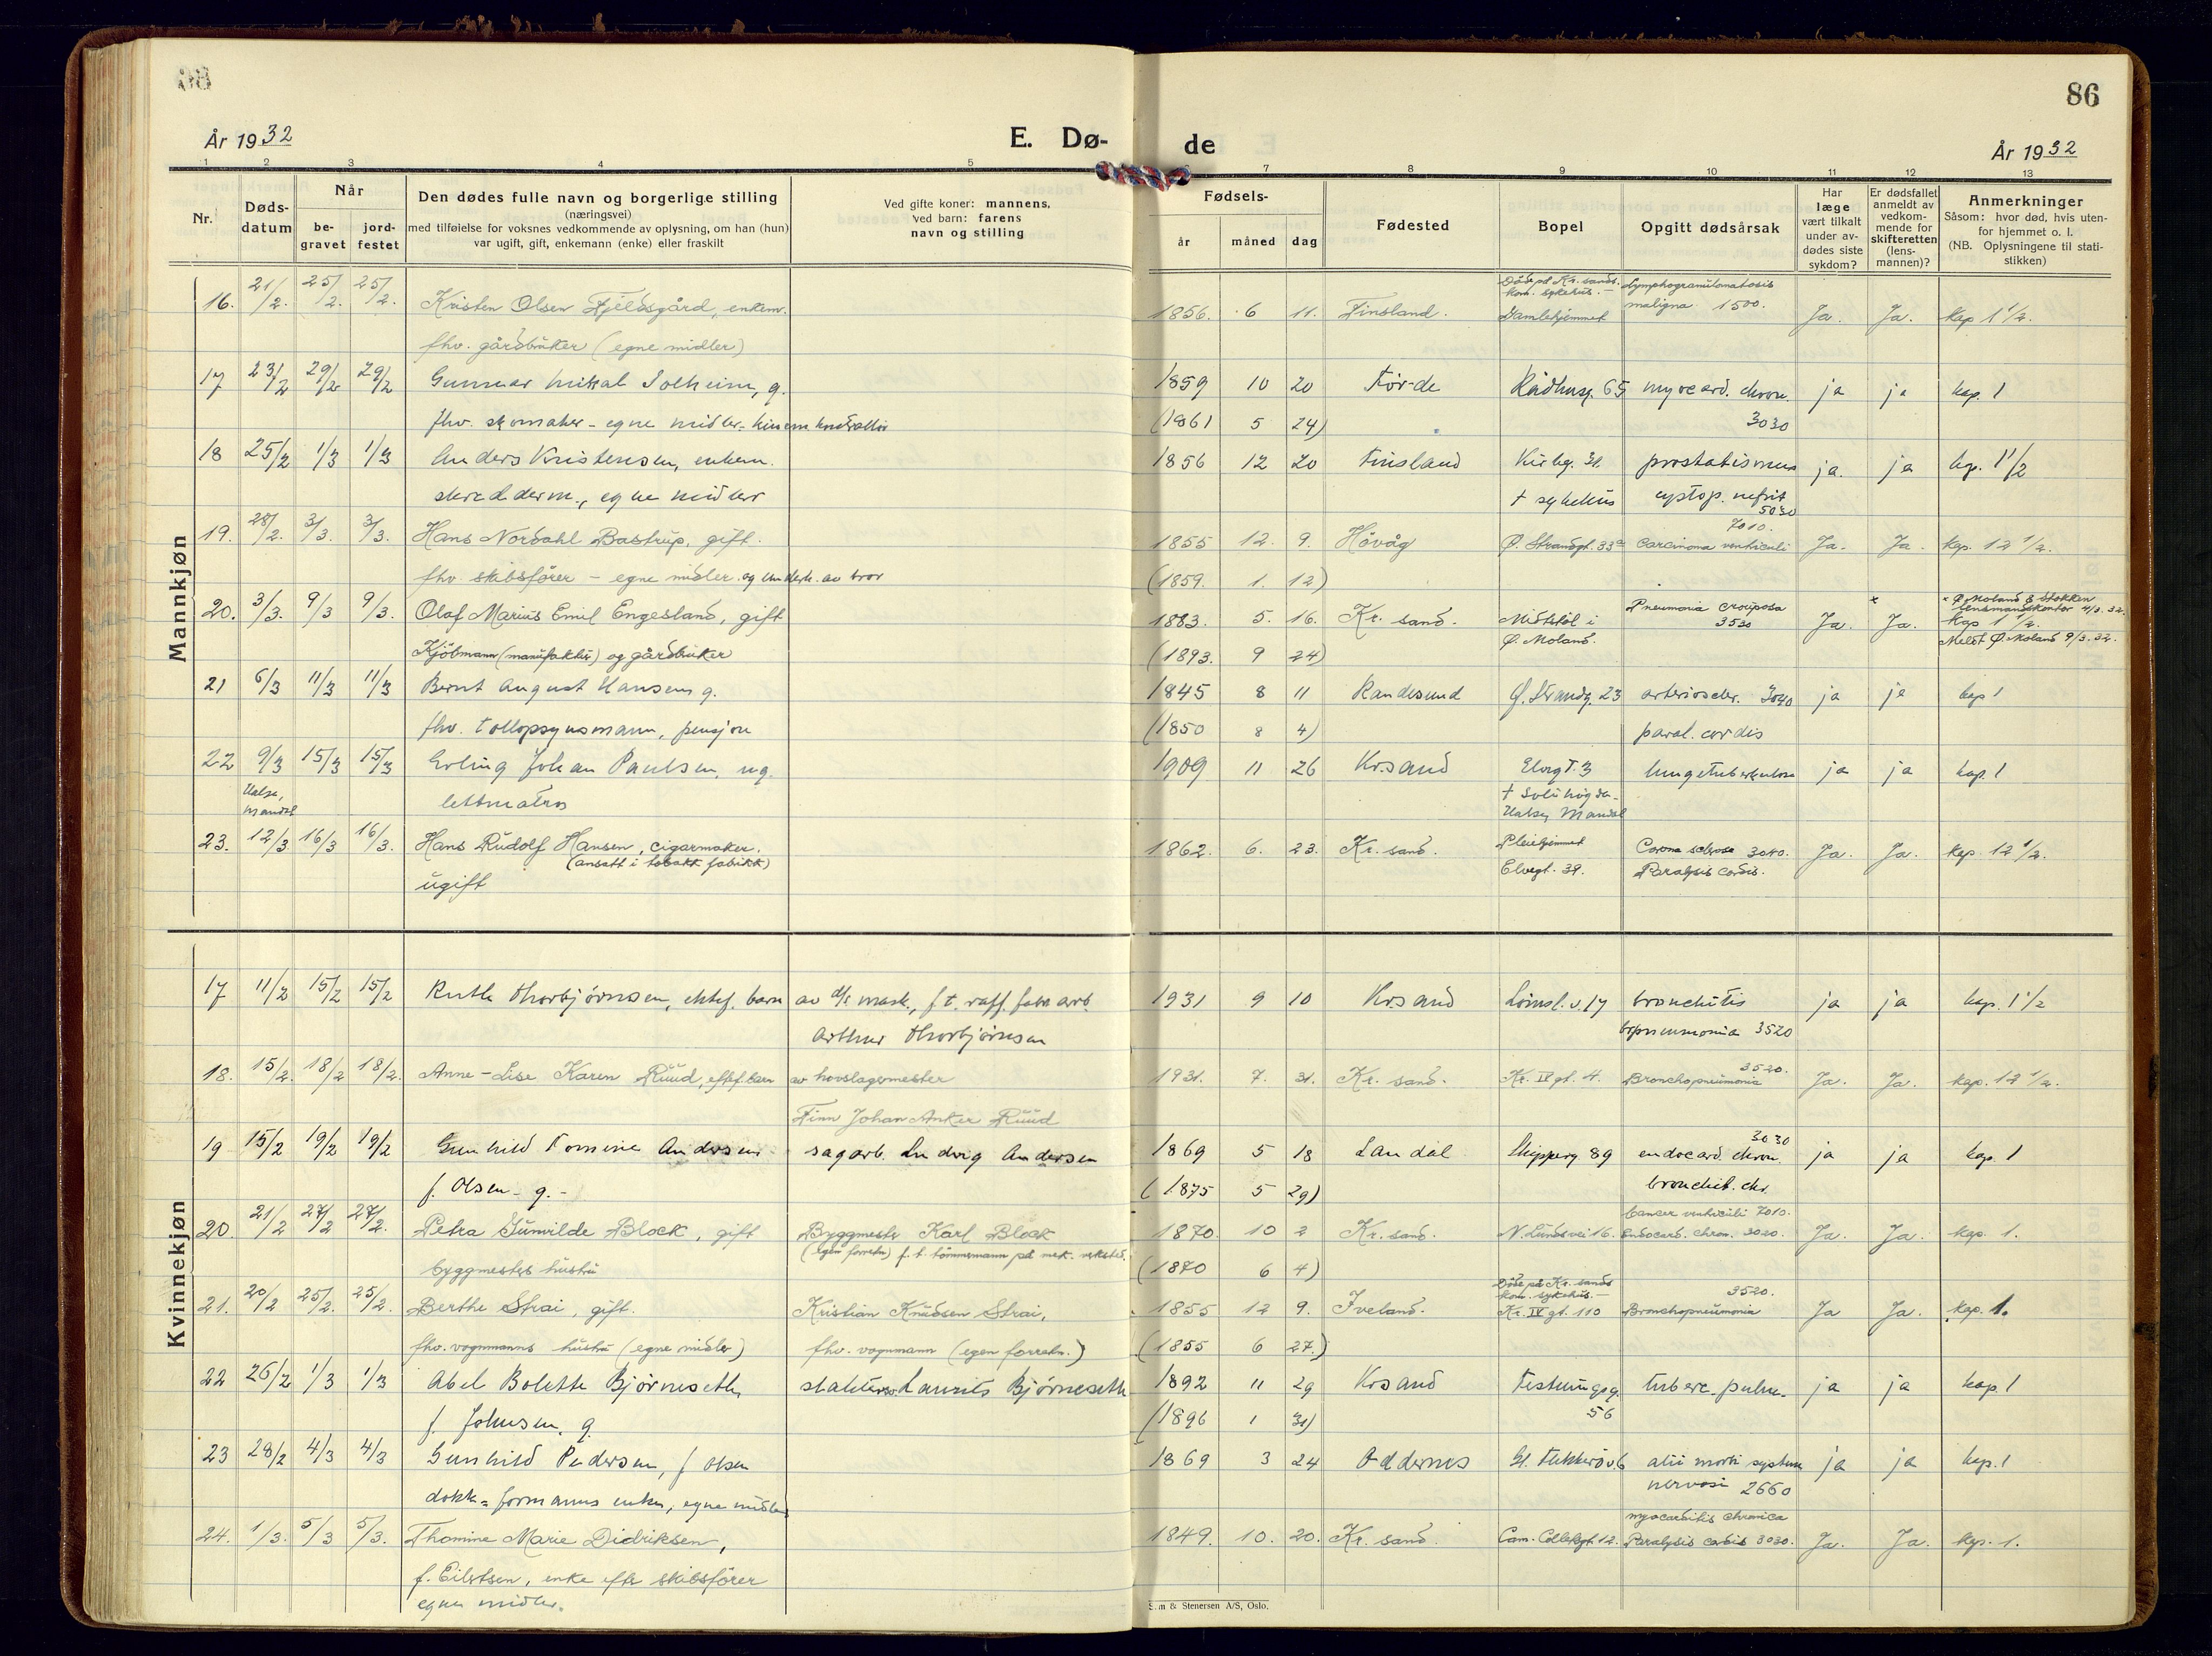 86
År 1932
E. Dø-
de
År 1932
1 2 3 4 5 6 7 8 9 10 11 12 13
Nr.
Døds-
datum
Når
be-
gravet
jord-
festet
Den dødes fulle navn og borgerlige stilling
(næringsvei)
med tilføielse for voksnes vedkommende av oplysning, om han (hun)
var ugift, gift, enkemann (enke) eller fraskilt
Ved gifte koner: mannens,
ved barn: farens
navn og stilling
Fødsels-
år måned dag
Fødested
Bopel
Opgitt dødsårsak
Har
læge
vært tilkalt
under av-
dødes siste
sykdom?
Er dødsfallet
anmeldt av
vedkom-
mende for
skifteretten
(lens-
mannen)?
Anmerkninger
Såsom: hvor død, hvis uten-
for hjemmet o. l.
(NB. Oplysningene til stati-
stikken)
Mannkjøn
Død på Kr. sands. Lymphogranulomatosis
kom. sykehus. - maligna 1500.
16. 21/2. 25/2. 25/2. Kristen Olsen Fjeldsgård, enkem. 1856. 6 11. Finsland. Gamlehjemmet Ja. Ja. kap 1 1/2.
fhv. gårdbruker (egne midler)
17 23/2 29/2 29/2 Gunnar Mikal Solheim, g. 1859 10 20 Førde Rådhusg. 65 myocard. chron. ja ja kap. 1
fhv. skomaker - egne midler - (1861 5 24) 3030
18 25/2 1/3 1/3 Anders Kristensen, enkem. 1856 12 20 Finsland Kirkeg. 31. prostatismus ja. ja kap. 1 1/2
skredderm., egne midler + sykehus cystop. nefrit
5030
7010.
19. 28/2. 3/3. 3/3. Hans Nordahl Bastrup, gift. 1855 12. 9. Høvåg Ø. Strandgt. 33a Carcinoma ventriculi Ja. Ja. kap. 12 1/2.
fhv. skibsfører - egne midler og underh. av bror (1859. 1. 12)
× Ø. Moland & Stokken
lensmandskontor 4/3. 32.
20. 3/3. 9/3 9/3. Olaf Marius Emil Engesland, gift 1883. 5. 16. Kr. sand. Midtstøl i Pneumonia crouposa Ja. × Ja. kap 1 1/2.
Kjøbmann (manufaktur) og gårdbruker (1893. 9 24) Ø. Moland. 3530 Meldt Ø. Moland 9/3. 32.
21 6/3 11/3 11/3 Bernt August Hansen g. 1845 8 11 Randesund Ø. Strandg. 23 arterioscler. 3040 ja ja kap 1
fhv. tollopsynsmann, pensjon (1850 8 4) paral. cordis
22 9/3 15/3 15/3 Erling Johan Paulsen, ug. 1909 11 26 Krsand Elvegt. 3 lungetuberkulose ja ja kap. 1
Halse, Mandal lettmatros + Solhøgda
Halse, Mandal
23. 12/3 16/3 16/3. Hans Rudolf Hansen, cigarmaker. 1862. 6. 23. Kr. sand. Pleiehjemmet Corona sclerose 3040. Ja. Ja. kap. 12 1/2.
(ansatt i tobakk fabrikk) Elvegt. 39. Paralysis cordis.
ugift
Kvinnekjøn
17 11/2 15/2 15/2 Ruth Thorbjørnsen, ektef. barn av mask., f. t. raff. arb. 1931 9 10 Krsand v. 17 bronchitis ja ja kap. 1 1/2
Arthur Thorbjørnsen brpneumonia 3520
18. 15/2. 18/2 18/2. Anne-Lise Karen Ruud, ektef. barn av hovslagermester 1931. 7. 31. Kr. sand. Kr. IV gt. 4. Bronchopneumonia 3520. Ja. Ja. kap. 12 1/2.
Finn Johan Anker Ruud
19 15/2 19/2 19/2 Gunhild Tomine Andersen sagarb. Ludvig Andersen 1869 5 18 Laudal Skipperg 89 endocard. chron. 3030 ja ja kap. 1
f. Olsen - g. - (1875 5 29) bronchit. chr.
20. 21/2 27/2 27/2. Petra Gunilde Block, gift Byggmester Karl Block 1870. 10 2 Kr. sand. N. Lundsvei 16. Cancer ventriculi 7010. Endocard. chron. 3020. Ja. Ja. kap. 1.
byggmesters hustru (egen forretn.) f. t. tømmermann på mek. verksted. (1870 6 4)
21. 20/2 25/2. 25/2. Berthe Strai, gift. Kristian Knudsen Strai, 1855 12 9. Iveland. Død på Kr. sands kom. sykehus. - Kr. IV gt. 110 3520. Bronchopneumonia Ja Ja. kap. 1.
fhv. vognmanns hustru (egne midler) fhv. vognmann (egen forretn.) (1855 6 27.)
22 26/2 1/3 1/3 Abel Bolette Bjørneseth, Laurits Bjørneseth 1892 11 29 Krsand Festningsg. 56 tuberc. pulm. ja ja kap. 1
f. Johnsen, g. (1896 1 31)
23 28/2 4/3 4/3 Gunhild Pedersen, f Olsen 1869 3 24 Oddernes Gl. Flekkerøv. 6 alii morbi system ja ja kap. 1
dokk-formanns enke, egne midler nervosi 2660
24. 1/3. 5/3 5/3. Thomine Marie Didriksen, 1849. 10. 20. Kr. sand. Cam. Colletsgt. 12. myocarditis chronica Paralysis cordis 3030. Ja. Ja. kap. 1.
f. Eilertsen, enke efter skibsfører
egne midler.
& Stenersen A/S, Oslo.